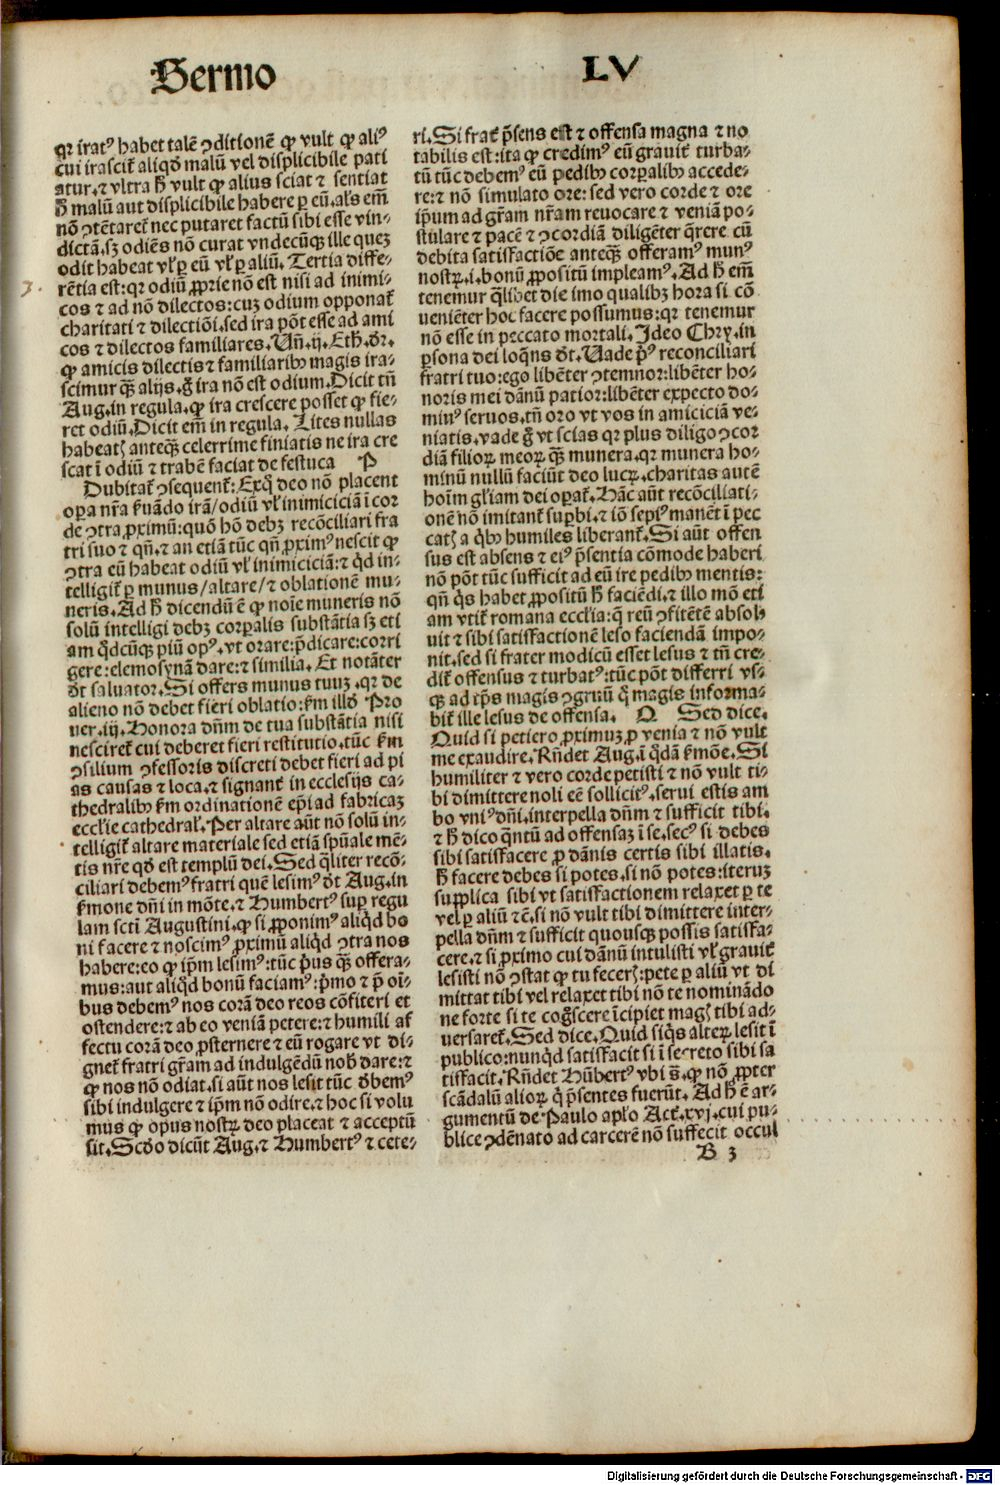 Sermo LV
qꝛ iratꝰ habet talē ꝯditionē ꝙ vult ꝙ aliꝰ
cui irascit᷑ aliqd̓ malū vel displicibile pati
atur. ⁊ vltra h̄ vult ꝙ alius sciat ⁊ sentiat
h̄ malū aut displicibile habere ꝑ eū. al̓s em̄
nō ꝯtētaret᷑ nec putaret factū sibi esse vin⸗
dictā. sꝫ odiēs nō curat vndecūqꝫ ille quez
odit habeat vl̓ ꝑ eū vl̓ ꝑ aliū. Tertia diffe⸗
rētia est: qꝛ odiū ꝓprie nō est nisi ad inimi⸗
cos ⁊ ad nō dilectos: cuz odium opponat᷑
charitati ⁊ dilectiōi. sed ira pōt esse ad ami
cos ⁊ dilectos familiares. Vn̄. ij. Eth. dr̄.
ꝙ amicis dilectis ⁊ familiaribꝰ magis ira⸗
scimur qꝫ̄ alijs. g̊ ira nō est odium. Dicit tn̄
Aug. in regula. ꝙ ira crescere posset ꝙ fie⸗
ret odiū. Dicit em̄ in regula. Lites nullas
habeatꝭ anteqꝫ̄ celerrime finiatis ne ira cre
scat ī odiū ⁊ trabē faciat de festuca P
Dubitat᷑ ꝯsequent᷑: Exq̊ deo nō placent
oꝑa nr̄a ẜuādo irā/ odiū vl̓ inimiciciā ī cor
de ꝯtra ꝓximū: quō hō debꝫ recōciliari fra
tri suo ⁊ qn̄. ⁊ an etiā tūc qn̄ ꝓximꝰ nescit ꝙ
ꝯtra eū habeat odiū vl̓ inimiciciā: ⁊ qd̓ in⸗
telligit᷑ ꝑ munus/ altare/ ⁊ oblationē mu⸗
neris. Ad h̄ dicendū ē ꝙ noīe muneris nō
solū intelligi debꝫ corꝑalis substātia sꝫ eti
am qd̓cūqꝫ piū opꝰ. vt orare: p̄dicare: corri
gere: elemosynā dare: ⁊ similia. Et notāter
dt̄ saluator. Si offers munus tuuz. qꝛ de
alieno nō debet fieri oblatio: ẜm illd̓ Pro
uer. iij. Honora dn̄m de tua substātia nisi
nesciret᷑ cui deberet fieri restitutio. tūc ẜm
ꝯsilium ꝯfessoris discreti debet fieri ad pi
as causas ⁊ loca. ⁊ signant᷑ in ecclesijs ca⸗
thedralibꝰ ẜm ordinationē ep̄i ad fabricaz
eccl̓ie cathedral᷑. Per altare aūt nō solū in⸗
telligit᷑ altare materiale sed etiā spūale mē⸗
tis nr̄e qd̓ est templū dei. Sed qͣliter recō⸗
ciliari debemꝰ fratri quē lesimꝰ dt̄ Aug. in
ẜmone dn̄i in mōte. ⁊ Humbertꝰ suꝑ regu
lam scti̅ Augustini. ꝙ si ꝓponimꝰ aliqd̓ bo
ni facere ⁊ noscimꝰ ꝓximū aliqd̓ ꝯtra nos
habere: eo ꝙ ip̄m lesimꝰ: tūc pͥus qꝫ̄ offera⸗
mus: aut aliqd̓ bonū faciamꝰ: pͥmo ⁊ p̄ oī⸗
bus debemꝰ nos corā deo reos cōfiteri et
ostendere: ⁊ ab eo veniā petere: ⁊ humili af
fectu corā deo ꝓsternere ⁊ eū rogare vt di⸗
gnet᷑ fratri gr̄am ad indulgēdū nob̓ dare: ⁊
ꝙ nos nō odiat. si aūt nos lesit tūc d̓bemꝰ
sibi indulgere ⁊ ip̄m nō odire. ⁊ hoc si volu
mus ꝙ opus nostrꝝ deo placeat ⁊ acceptū
sit. Scd̓o dicūt Aug. ⁊ Humbertꝰ ⁊ cete⸗
ri. Si frat᷑ p̄sens est ⁊ offensa magna ⁊ no
tabilis est: ita ꝙ credimꝰ eū grauit᷑ turba⸗
tū tūc debemꝰ eū pedibꝰ corꝑalibꝰ accede⸗
re: ⁊ nō simulato ore: sed vero corde ⁊ ore
ip̄um ad gr̄am nr̄am reuocare ⁊ veniā po⸗
stulare ⁊ pacē ⁊ ꝯcordiā diligēter q̄rere cū
debita satisfactiōe anteqꝫ̄ offeramꝰ munꝰ
nostꝝ. i. bonū ꝓpositū impleamꝰ. Ad h̄ em̄
tenemur qͣlibet die imo qualibꝫ hora si cō
ueniēter hoc facere possumus: qꝛ tenemur
nō esse in peccato mortali. Ideo Chry. in
ꝑsona dei loq̄ns dt̄. Vade pͥꝰ reconciliari
fratri tuo: ego libēter ꝯtemnor: libēter ho⸗
noris mei dānū patior: libēter expecto do⸗
miuꝰ seruos. tn̄ oro vt vos in amiciciā ve⸗
niatis. vade g̊ vt scias qꝛ plus diligo ꝯcor
diā filioꝝ meoꝝ qꝫ̄ munera. qꝛ munera ho⸗
minū nullū faciūt deo lucꝝ. charitas autē
hoīm gl̓iam dei oꝑat᷑. Hāc aūt recōciliati⸗
onē nō imitant᷑ suꝑbi. ⁊ iō sepiꝰ manēt ī pec
catꝭ a qͥbꝰ humiles liberant᷑. Si aūt offen
sus est absens ⁊ eiꝰ p̄sentia cōmode haberi
nō pōt tūc sufficit ad eū ire pedibꝰ mentis:
qn̄ qͥs habet ꝓpositū h̄ faciēdi. ⁊ illo mō eti
am vtit᷑ romana eccl̓ia: q̄ reū ꝯfitētē absol
uit ⁊ sibi satisfactionē leso faciendā impo⸗
nit. sed si frater modicū esset lesus ⁊ tn̄ cre⸗
dit᷑ offensus ⁊ turbatꝰ: tūc pōt differri vs⸗
qꝫ ad tp̄s magis ꝯgruū qͦ magis informa⸗
bit᷑ ille lesus de offensa. Q Sed dice.
Quid si petiero ꝓximuz ꝓ venia ⁊ nō vult
me exaudire. Rn̄det Aug. ī qͦdā ẜmōe. Si
humiliter ⁊ vero corde petisti ⁊ nō vult ti⸗
bi dimittere noli eē sollicitꝰ. serui estis am
bo vniꝰ dn̄i. interpella dn̄m ⁊ sufficit tibi.
⁊ h̄ dico qͣntū ad offensaz ī se. secꝰ si debes
sibi satisfacere ꝓ dānis certis sibi illatis.
h̄ facere debes si potes. si nō potes: iteruz
supplica sibi vt satisfactionem relaxet ꝑ te
vel ꝑ aliū ⁊c̄. si nō vult tibi dimittere inter⸗
pella dn̄m ⁊ sufficit quousqꝫ possis satisfa⸗
cere. ⁊ si proximo cui dānū intulisti vl̓ grauit᷑
lesisti nō ꝯstat ꝙ tu fecerꝭ: pete ꝑ aliū vt di
mittat tibi vel relaxet tibi nō te nominādo
ne forte si te cog̊scere īcipiet magꝭ tibi ad⸗
uersaret᷑. Sed dice. Quid siqͥs alteꝝ lesit ī
publico: nunqd̓ satisfacit si ī secreto sibi sa
tisfacit. Rn̄det Hūbertꝰ vbi s̄. ꝙ nō ꝓpter
scādalū alioꝝ qͥ p̄sentes fuerūt. Ad h̄ ē ar⸗
gumentū de Paulo apl̓o Act᷑. xvj. cui pu⸗
blice ꝯdēnato ad carcerē nō suffecit occul
B 3
3.
Digitalisierung gefördert durch die Deutsche Forschungsgemeinschaft - DFG